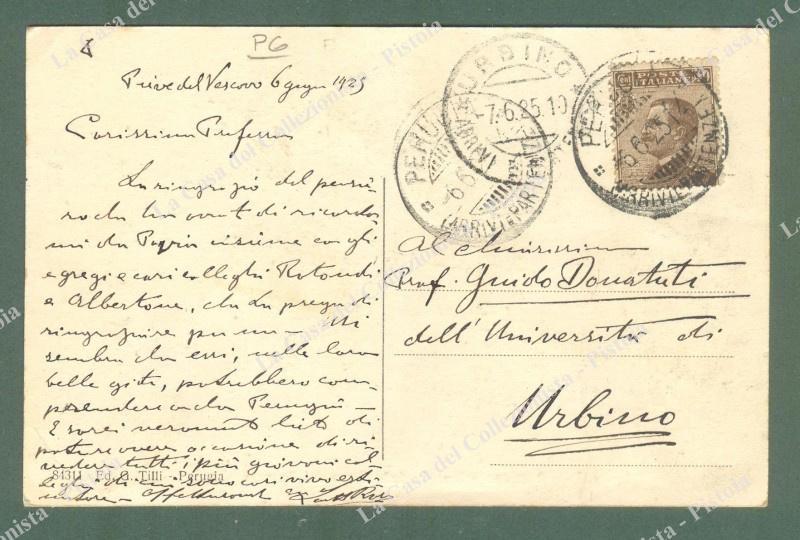 P6
Pieve del Vescovo 6 giugno 1925
Carissimo Professore
La ringrazio del pensie
ro che ha avuto di ricordar
mi da Pavia insieme cogli
egregi e cari colleghi Rotondi
e Albertone, che La prego di
ringraziare per me — Mi
sembra che essi, nelle loro
belle gite, potrebbero com
prendere anche Perugia —
E sarei veramente lieto di
potere avere occasione di ri
vedere tutti i più giovani col
leghi di cui sono così vivo esti
matore — Aff
84311 Ed. G. Tilli - Perugia
URBINO
-7.6.25.10
PERU
6.6
(ARRIVI E PARTEN
PERU
6.6.25.1
(ARRIVI E PARTENZE)
POSTE ITALIANE
Al Chiarissimo
Prof. Guido Donatuti
dell'Università di
Urbino
La Casa del Collezionista - Pistoia